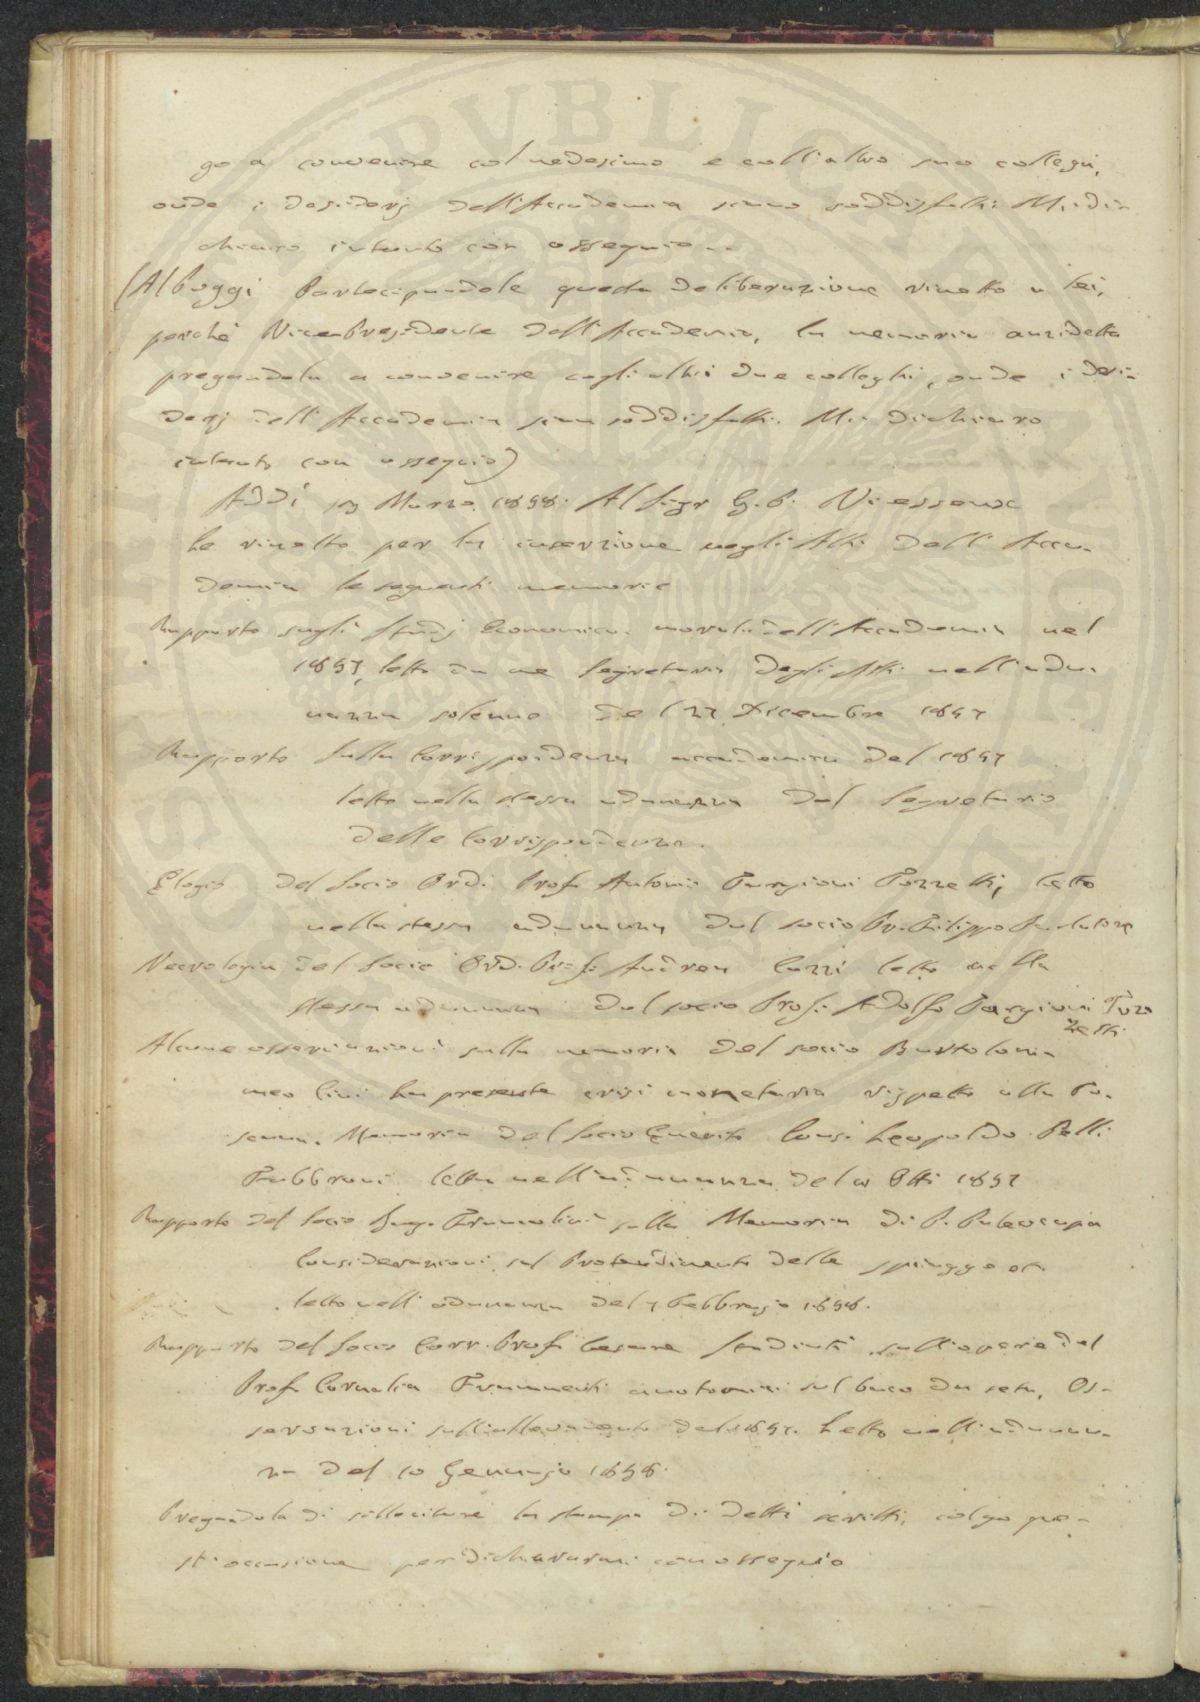 go a convenire col medesimo e coll'altro suo collega,
onde i desiderj dell'Accademia sieno soddisfatti. Mi di-
chiaro intanto con ossequio
(Al Poggi Partecipandole questa deliberazione rimetto a lei,
perchè Vicepresidente dell'Accademia, la memoria anzidetta
pregandola a convenire cogli altri due colleghi, onde i desi-
derj dell'Accademia sien soddisfatti. Mi dichiaro
intanto con ossequio)
Addì 13 Marzo 1858. Al Sigr G. P. Vieusseux
Le rimetto per la inserzione negli Atti dell'Acca-
demia le seguenti memorie
Rapporto sugli Studj Economico-morali dell'Accademia nel
1857, letto da me Segretario degli Atti nell'adu-
nanza solenne del 27 Dicembre 1857
Rapporto sulla Corrispondenza accademica del 1857
letto nella stessa adunanza dal Segretario
delle Corrispondenze.
Elogio del Socio Ord. Prof. Antonio Targioni Tozzetti, letto
nella stessa adunanza dal socio Filippo Parlatore
Necrologia del Socio Ord. Prof. Andrea Cozzi letta nella
stessa adunanza dal socio Prof. Adolfo Targioni Toz
zetti
Alcune osservazioni sulla memoria del socio Bartolom-
meo Cini La presente crisi monetaria rispetto alla To-
scana. Memoria del Socio Emerito Leopoldo Pelli
Fabbroni letta nell'adunanza del 1857
Rapporto del Socio Ing. Francolini sulla Memoria di P. Paleocapa
Considerazioni sul Protendimento delle spiagge
letto nell'adunanza del 7 Febbrajo 1858.
Rapporto del Socio Corr. Prof. Cesare Studiati sull'opere del
Prof. Cornalia Frammenti anatomici sul baco da seta, Os-
servazioni sull'allevamento del 1857. Letto nell'adunan-
za del 10 Gennajo 1858.
Pregandola di sollecitare la stampa di detti scritti, colgo que-
st'occasione per dichiararmi con ossequio